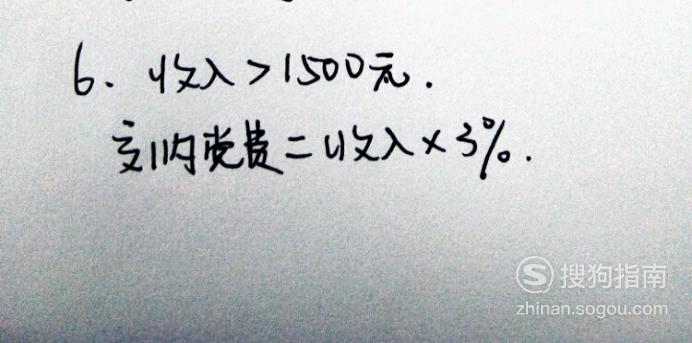 6. 收入>1500元.
交纳党费=收入×3%.
S 搜狗指南
zhinan.sogou.com